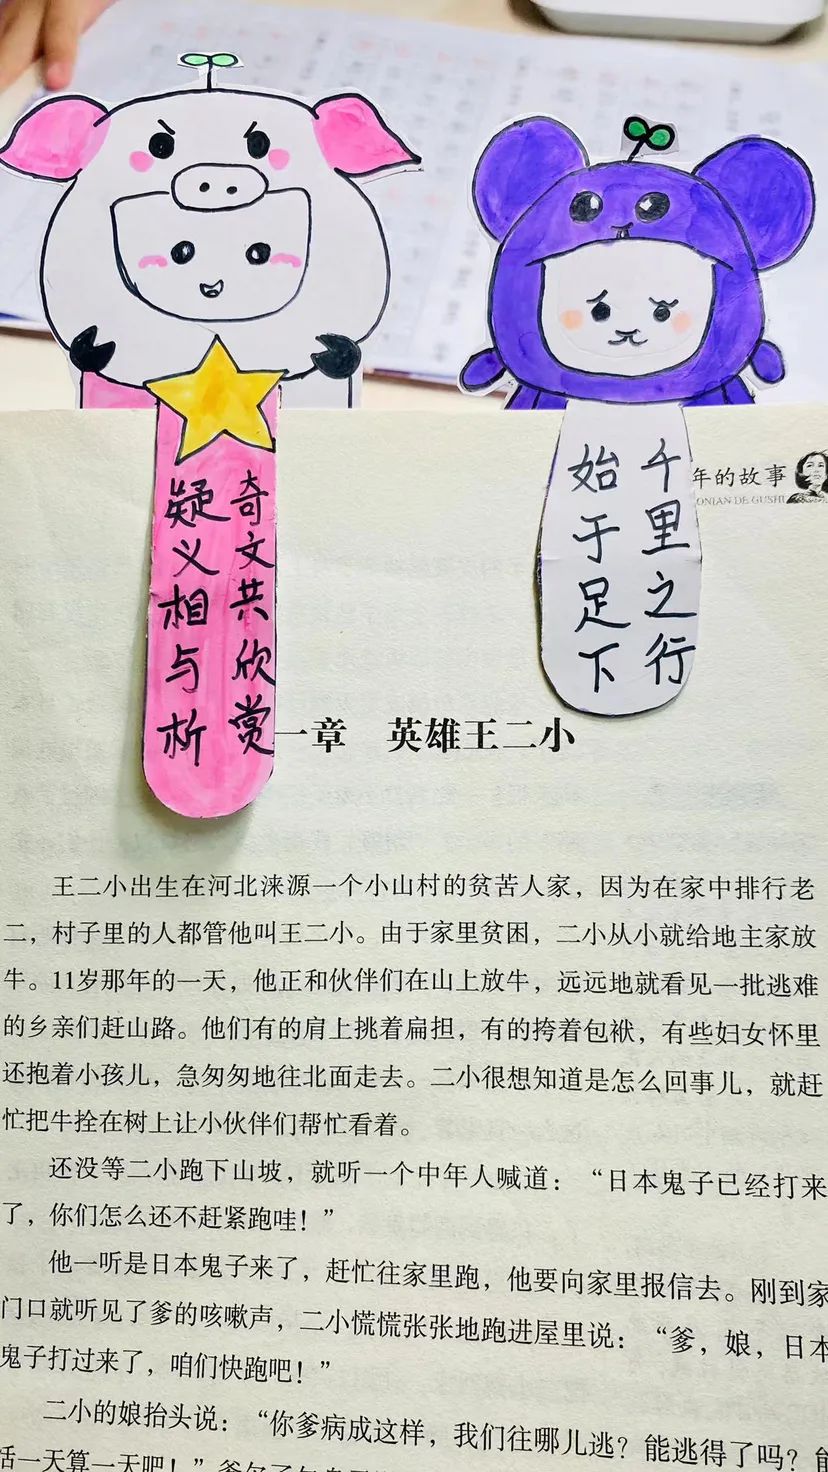 奇文共欣赏
疑义相与析
千里之行
始于足下
年的故事
ONIAN DE GUSHI
一章 英雄王二小
王二小出生在河北涞源一个小山村的贫苦人家，因为在家中排行老
二，村子里的人都管他叫王二小。由于家里贫困，二小从小就给地主家放
牛。11岁那年的一天，他正和伙伴们在山上放牛，远远地就看见一批逃难
的乡亲们赶山路。他们有的肩上挑着扁担，有的挎着包袱，有些妇女怀里
还抱着小孩儿，急匆匆地往北面走去。二小很想知道是怎么回事儿，就赶
忙把牛拴在树上让小伙伴们帮忙看着。
还没等二小跑下山坡，就听一个中年人喊道：“日本鬼子已经打来
了，你们怎么还不赶紧跑哇！”
他一听是日本鬼子来了，赶忙往家里跑，他要向家里报信去。刚到家
门口就听见了爹的咳嗽声，二小慌慌张张地跑进屋里说：“爹，娘，日本
鬼子打过来了，咱们快跑吧！”
二小的娘抬头说：“你爹病成这样，我们往哪儿逃？能逃得了吗？能
活一天算一天吧！”爹